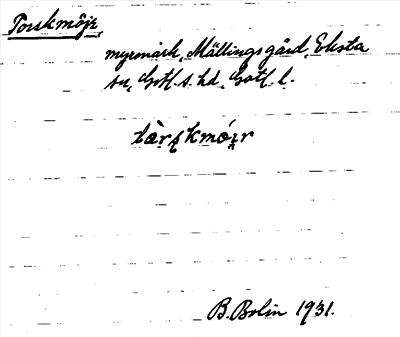 Torskmöjr,
myrmark, Mällings gård, Eksta
sn, Gotl. s. hd, Gotl. l.
tàrskmóir
B. Bolin 1931.